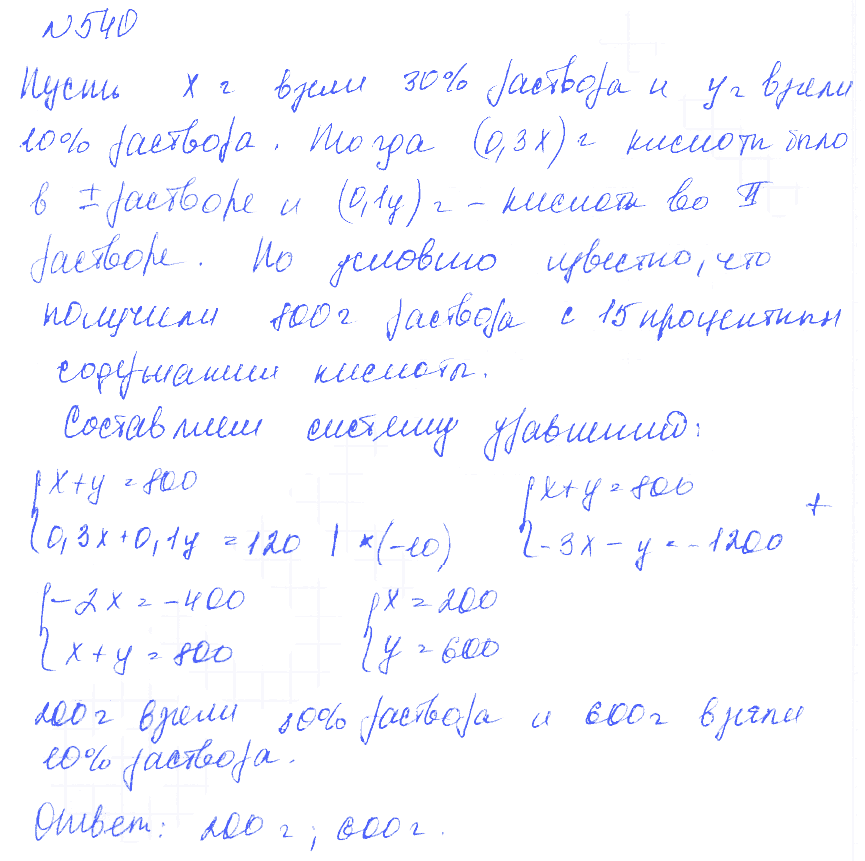 №540
Пусть x г взяли 30% раствора и y г взяли
10% раствора. Тогда (0,3x) г кислоты было
в I растворе и (0,1y) г - кислоты во II
растворе. По условию известно, что
получили 800 г раствора с 15 процентным
содержанием кислоты.
Составляем систему уравнений:
{ x+y = 800 { x+y = 800 +
{ 0,3x+0,1y = 120 | *(-10) { -3x - y = -1200
{ -2x = -400 { x = 200
{ x+y = 800 { y = 600
200 г взяли 30% раствора и 600 г взяли
10% раствора.
Ответ: 200 г; 600 г.